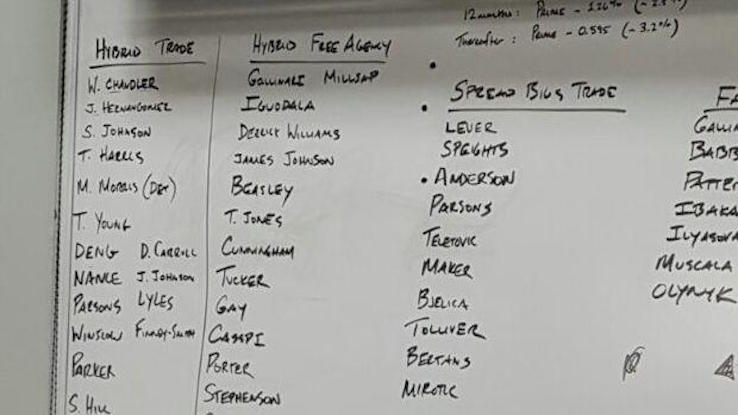 12 months: Prime -
Thereafter: Prime - 0.595 (-3.2%)
HYBRID TRADE
W. CHANDLER
J. HERNANGOMEZ
S. JOHNSON
T. HARRIS
M. MORRIS (DET)
T. YOUNG
DENG D. CARROLL
NANCE J. JOHNSON
PARSONS LYLES
WINSLOW FINNEY-SMITH
PARKER
S. HILL
HYBRID FREE AGENCY
GALLINARI MILLSAP
IGUODALA
DERRICK WILLIAMS
JAMES JOHNSON
BEASLEY
T. JONES
CUNNINGHAM
TUCKER
GAY
CASSPI
PORTER
STEPHENSON
SPREAD BIGS TRADE
LEUER
SPEIGHTS
• ANDERSON
PARSONS
TELETOVIC
MAKER
BJELICA
TOLLIVER
BERTANS
MIROTIC
FA
GALLIN
BABB
PATTE
IBAKA
ILYASOVA
MUSCALA
OLYNYK